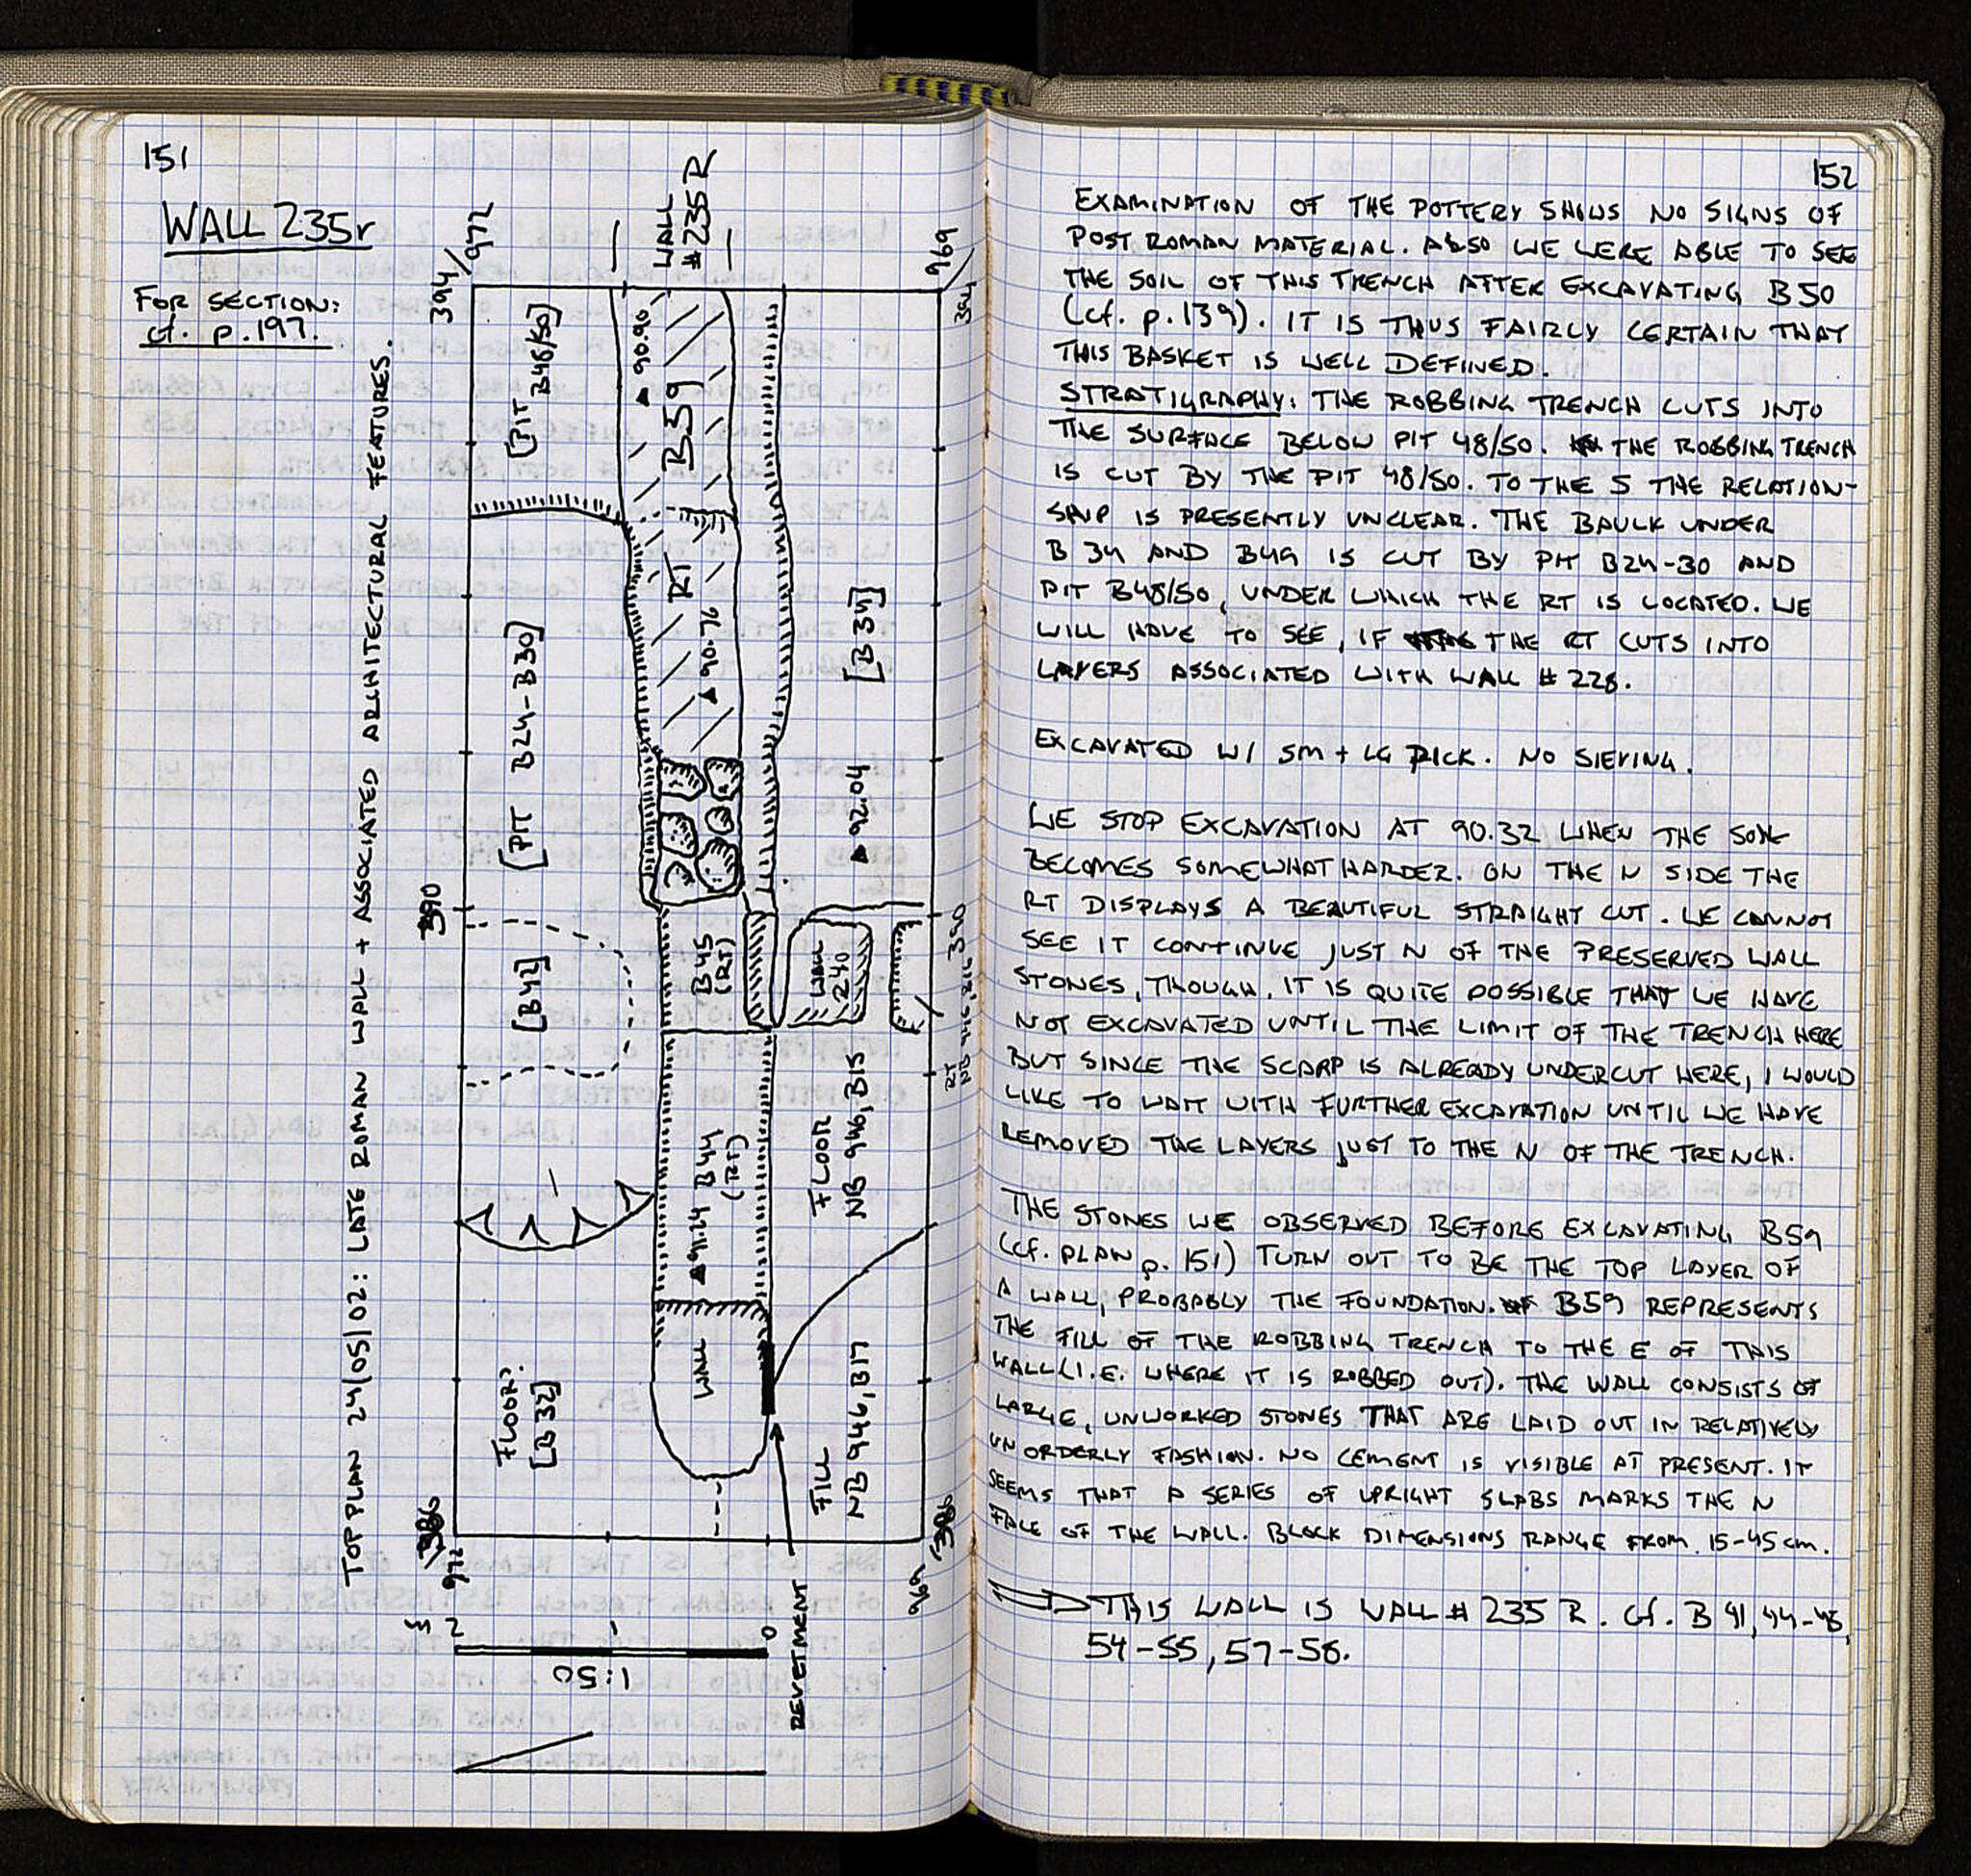 151
WALL 235r
FOR SECTION:
cf. p.197.
TOP PLAN 24/05/02: LATE ROMAN WALL + ASSOCIATED ARCHITECTURAL FEATURES.
394/972
WALL
#235 R
969
394
[PIT
B48/50]
▲ 90.90
B59
RT
▲ 90.76
[PIT B24-B30]
[B34]
▲ 92.04
390
[B42]
B45
(RT)
WALL
240
390
RT
NB 946, B16
▲ 91.24 B44
(RT)
FLOOR
NB 946, B15
FLOOR?
[B32]
WALL
FILL
NB 946, B17
386
972
969
386
2
1
0
1:50
REVETMENT
152
EXAMINATION OF THE POTTERY SHOWS NO SIGNS OF
POST ROMAN MATERIAL. ALSO WE WERE ABLE TO SEE
THE SOIL OF THIS TRENCH AFTER EXCAVATING B50
(cf. p.139). IT IS THUS FAIRLY CERTAIN THAT
THIS BASKET IS WELL DEFINED.
STRATIGRAPHY: THE ROBBING TRENCH CUTS INTO
THE SURFACE BELOW PIT 48/50. THE ROBBING TRENCH
IS CUT BY THE PIT 48/50. TO THE S THE RELATION-
SHIP IS PRESENTLY UNCLEAR. THE BAULK UNDER
B 34 AND B49 IS CUT BY PIT B24-30 AND
PIT B48/50, UNDER WHICH THE RT IS LOCATED. WE
WILL HAVE TO SEE, IF THE RT CUTS INTO
LAYERS ASSOCIATED WITH WALL # 228.
EXCAVATED W/ SM + LG PICK. NO SIEVING.
WE STOP EXCAVATION AT 90.32 WHEN THE SOIL
BECOMES SOMEWHAT HARDER. ON THE N SIDE THE
RT DISPLAYS A BEAUTIFUL STRAIGHT CUT. WE CANNOT
SEE IT CONTINUE JUST N OF THE PRESERVED WALL
STONES, THOUGH. IT IS QUITE POSSIBLE THAT WE HAVE
NOT EXCAVATED UNTIL THE LIMIT OF THE TRENCH HERE
BUT SINCE THE SCARP IS ALREADY UNDERCUT HERE, I WOULD
LIKE TO WAIT WITH FURTHER EXCAVATION UNTIL WE HAVE
REMOVED THE LAYERS JUST TO THE N OF THE TRENCH.
THE STONES WE OBSERVED BEFORE EXCAVATING B59
(cf. PLAN p. 151) TURN OUT TO BE THE TOP LAYER OF
A WALL, PROBABLY THE FOUNDATION. B59 REPRESENTS
THE FILL OF THE ROBBING TRENCH TO THE E OF THIS
WALL (I.E. WHERE IT IS ROBBED OUT). THE WALL CONSISTS OF
LARGE, UNWORKED STONES THAT ARE LAID OUT IN RELATIVELY
UNORDERLY FASHION. NO CEMENT IS VISIBLE AT PRESENT. IT
SEEMS THAT A SERIES OF UPRIGHT SLABS MARKS THE N
FACE OF THE WALL. BLOCK DIMENSIONS RANGE FROM 15-45 cm.
THIS WALL IS WALL # 235 R. Cf. B 41, 44-45,
54-55, 57-58.